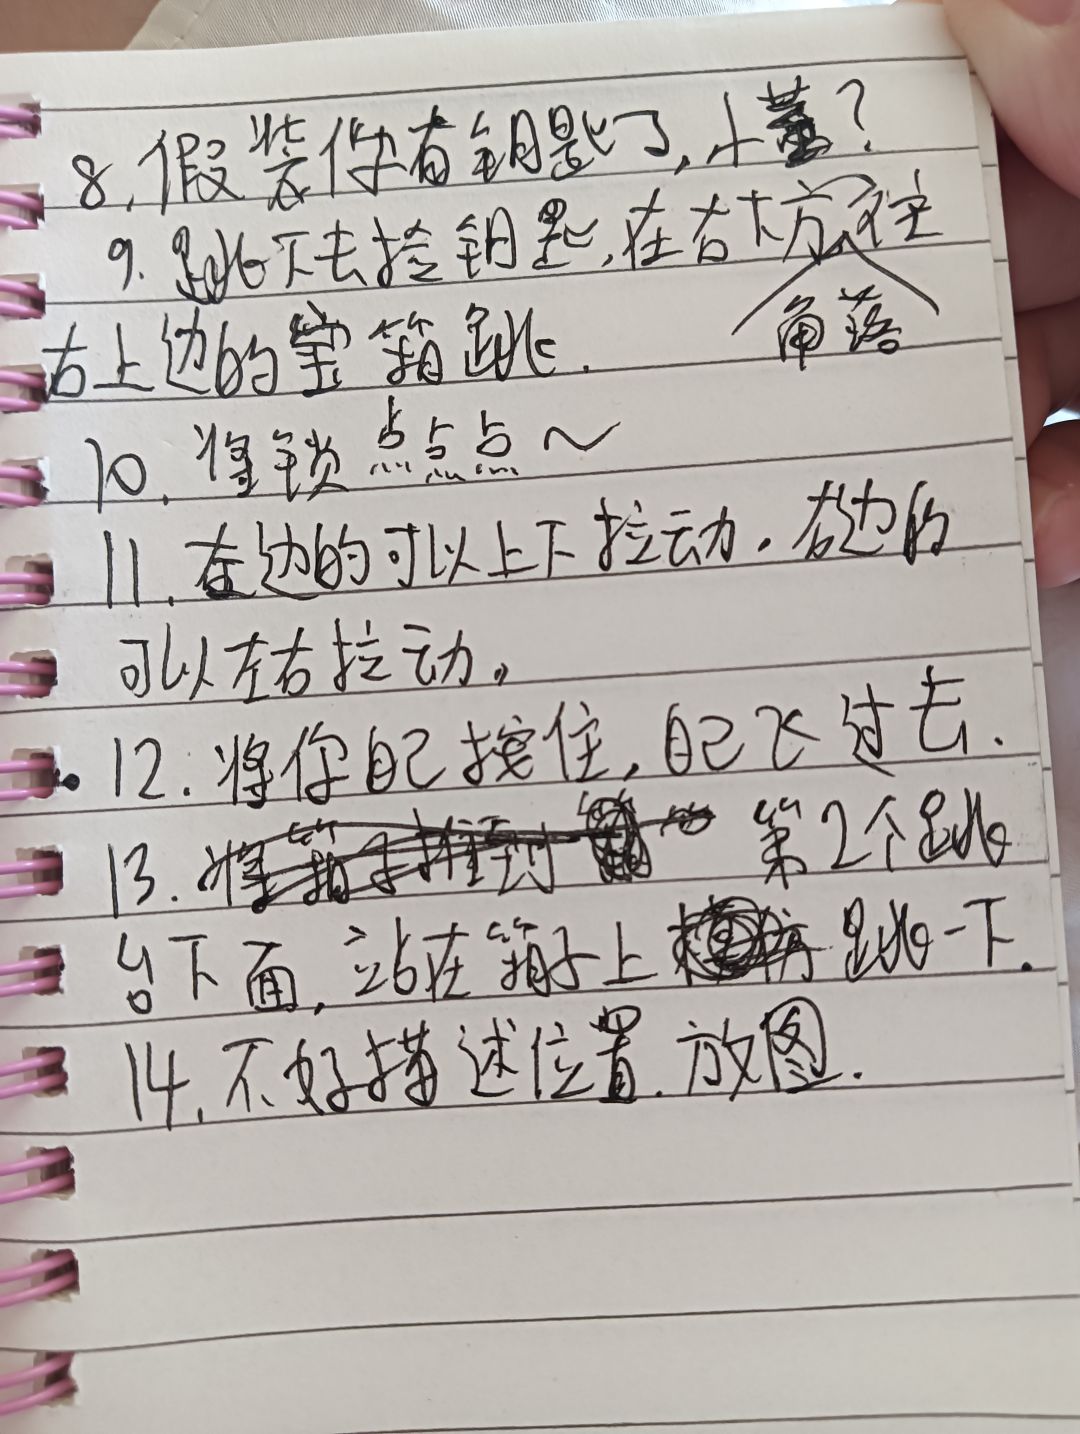 8.假装你有钥匙了,小董?
9.跳下去捡钥匙,在右下方角落往
右上边的宝箱跳.
10.将锁点点点~
11.左边的可以上下拉动.右边的
可以左右拉动。
12.将你自己按住,自己飞过去.
13.第2个跳
台下面,站在箱子上跳一下.
14.不好描述位置.放图.